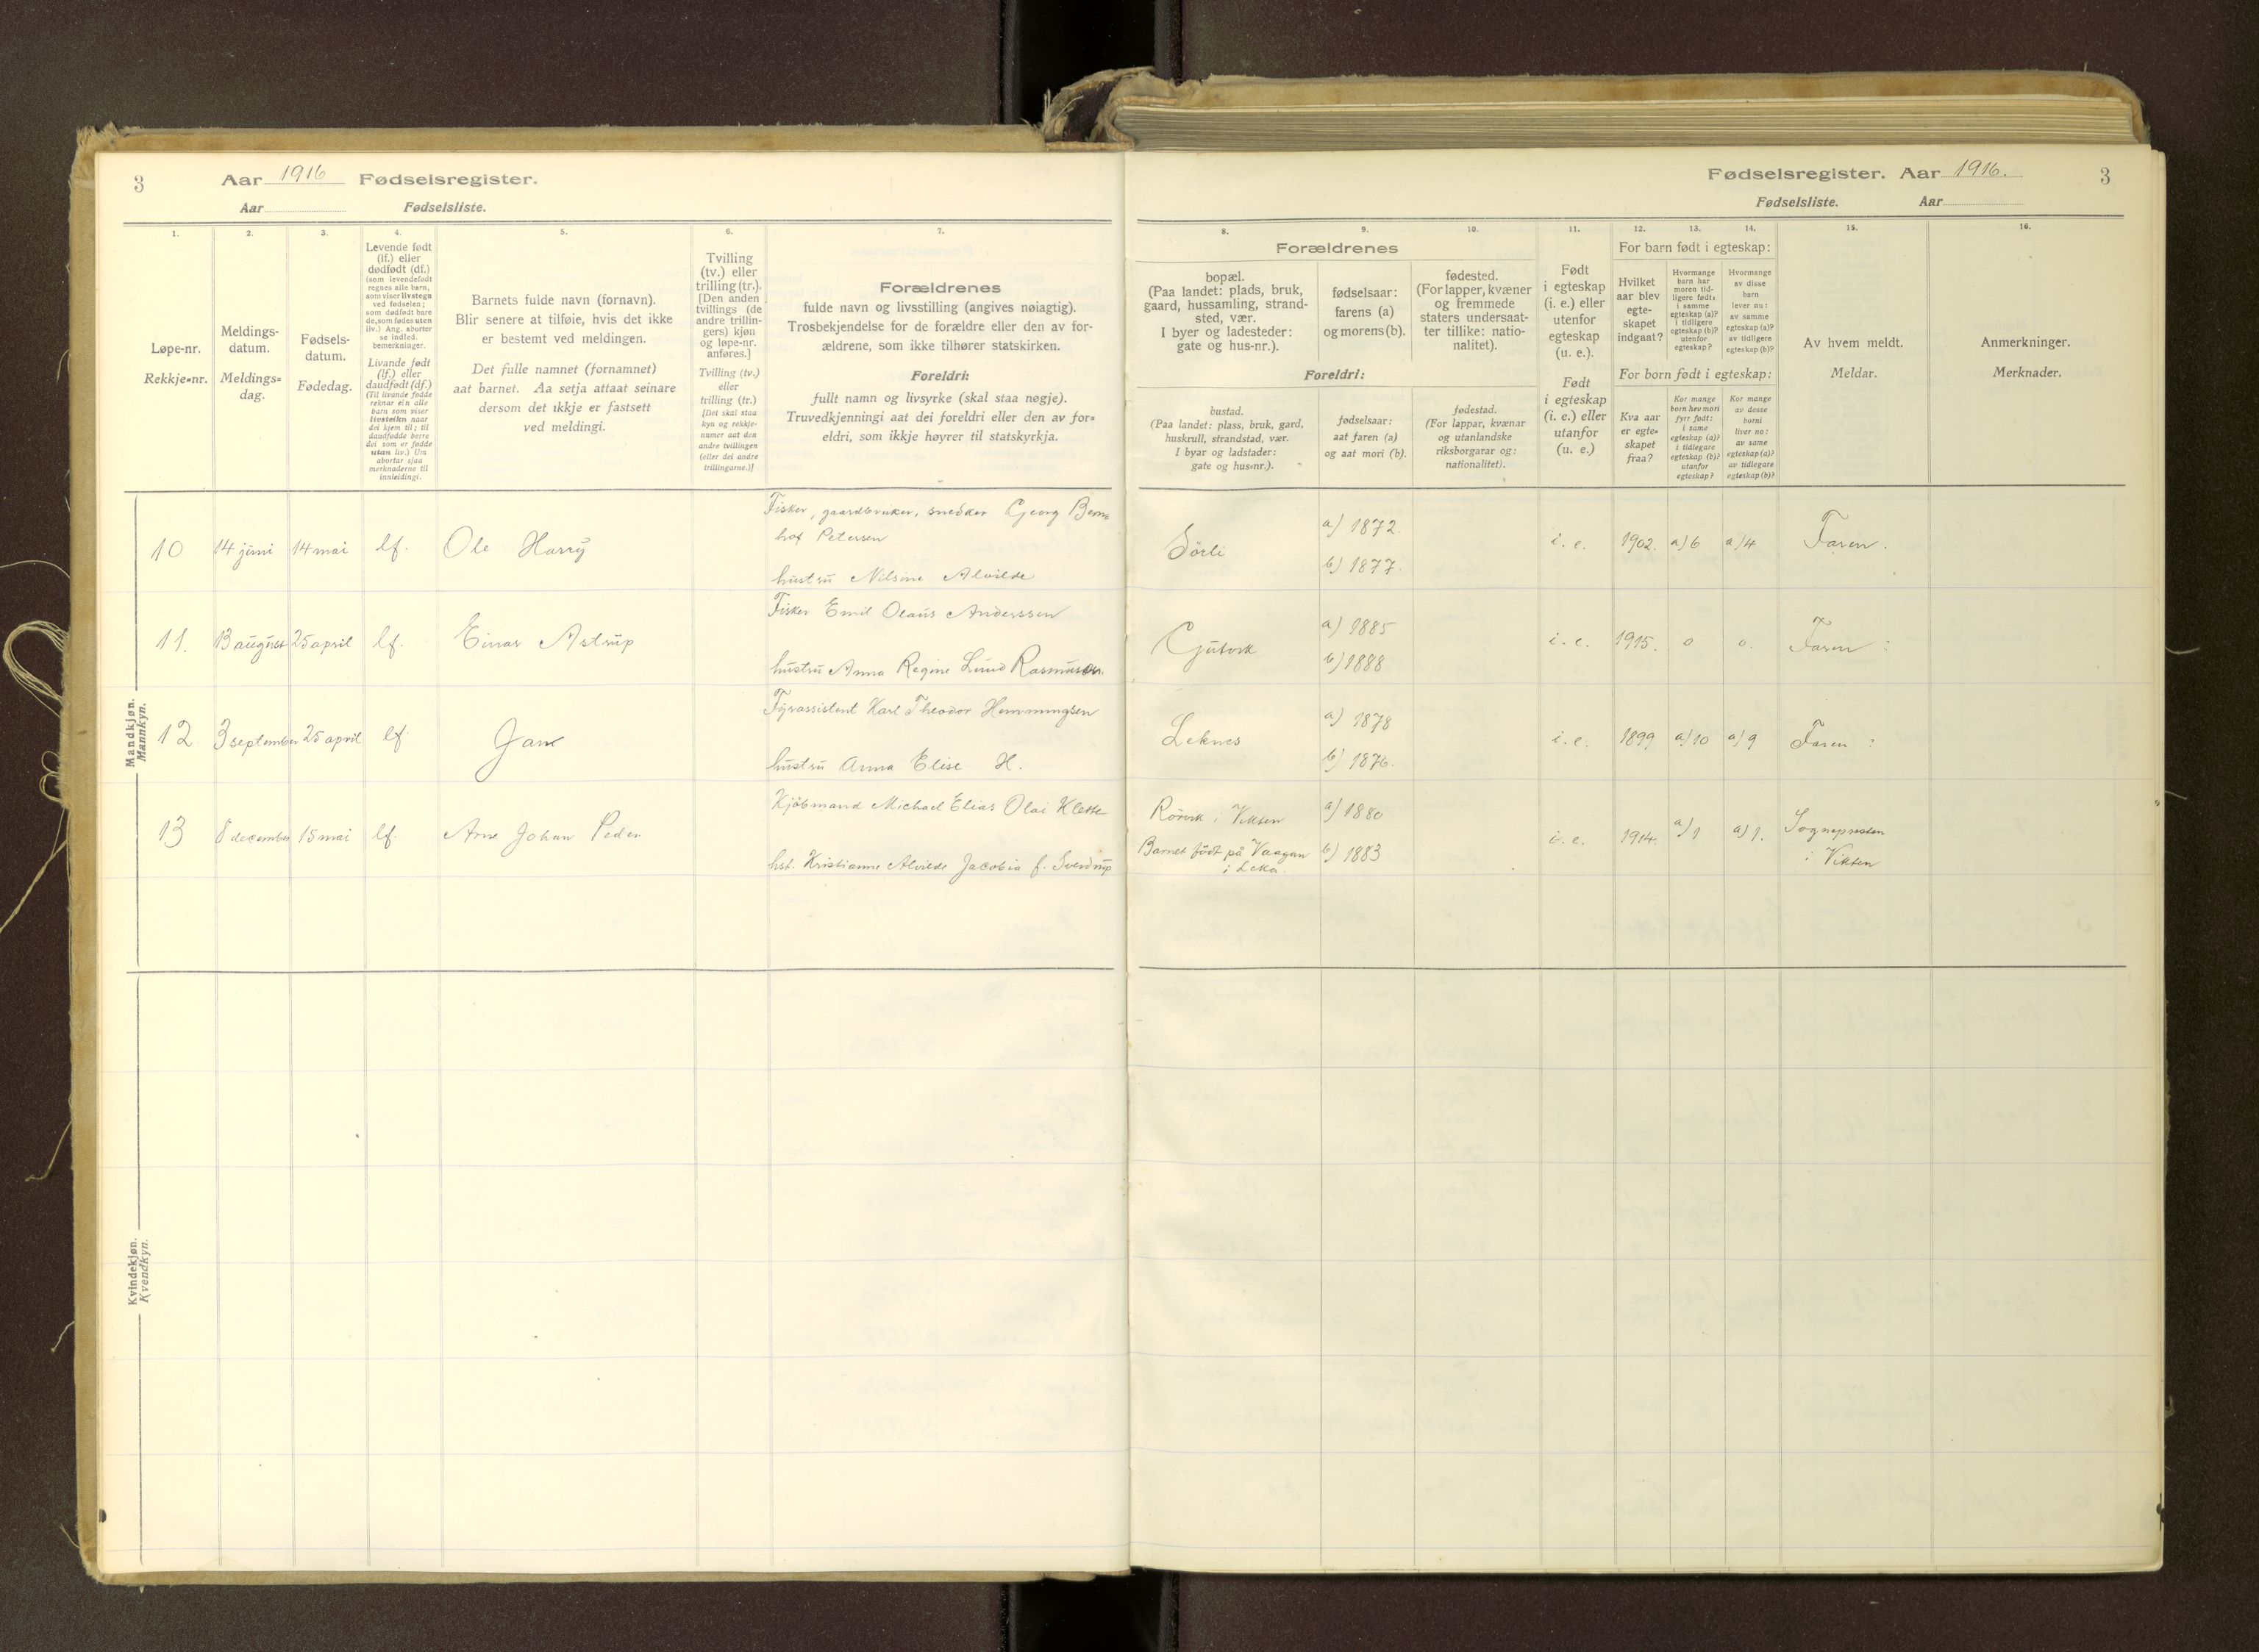 3
Aar 1916 Fødselsregister.
Aar Fødselsliste.
1.
2.
3.
4.
5.
6.
7.
Løpe-nr.
Rekkje-nr.
Meldings-
datum.
Meldings-
dag.
Fødsels-
datum.
Fødedag.
Levende født
(lf.) eller
dødfødt (df.)
(som levendefødt
regnes alle barn,
som viser livstegn
ved fødselen;
som dødfødt bare
de, som fødes uten
liv.) Ang. aborter
se indled.
bemerkninger.
Livande født
(lf.) eller
daudfødt (df.)
(Til livande fødde
reknar ein alle
barn som viser
livsteikn naar
dei kjem til; til
daudfødde berre
dei som er fødde
utan liv.) Um
abortar sjaa
merknaderne til
innleidingi.
Barnets fulde navn (fornavn).
Blir senere at tilføie, hvis det ikke
er bestemt ved meldingen.
Det fulle namnet (fornamnet)
aat barnet. Aa setja attaat seinare
dersom det ikkje er fastsett
ved meldingi.
Tvilling
(tv.) eller
trilling (tr.).
[Den anden
tvillings (de
andre trillin-
gers) kjøn
og løpe-nr.
anføres.]
Tvilling (tv.)
eller
trilling (tr.)
[Dei skal staa
kyn og rekkje-
numer aat den
andre tvillingen
(eller dei andre
trillingarne.)]
Forældrenes
fulde navn og livsstilling (angives nøiagtig).
Trosbekjendelse for de forældre eller den av for-
ældrene, som ikke tilhører statskirken.
Foreldri:
fullt namn og livsyrke (skal staa nøgje).
Truvedkjenningi aat dei foreldri eller den av for-
eldri, som ikkje høyrer til statskyrkja.
Mandkjøn.
Mannkyn.
10 14 juni 14 mai lf. Ole Harry
Fisker, gaardbruker, snedker Georg Bern-
hof Petersen
hustru Nilsine Alvilde
11. 13 august 25 april lf. Einar Astrup
Fisker Emil Olaus Anderssen
hustru Anna Regine Lund Rasmussen.
12. 3 september 25 april lf. Jan
Fyrassistent Karl Theodor Hemmingsen
hustru Anna Elise H.
13 8 december 15 mai lf. Arne Johan Peder
Kjöbmand Michael Elias Olai Klette
hst. Kristianne Alvilde Jacobia f. Sverdrup
Kvindekjøn.
Kvendkyn.
Fødselsregister. Aar 1916. 3
Fødselsliste. Aar
8.
9.
10.
11.
12.
13.
14.
15.
16.
Forældrenes
bopæl.
(Paa landet: plads, bruk,
gaard, hussamling, strand-
sted, vær.
I byer og ladesteder:
gate og hus-nr.).
fødselsaar:
farens (a)
og morens (b).
fødested.
(For lapper, kvæner
og fremmede
staters undersaat-
ter tillike: natio-
nalitet).
Foreldri:
bustad.
(Paa landet: plass, bruk, gard,
huskrull, strandstad, vær.
I byar og ladstader:
gate og hus-nr.).
fødselsaar:
aat faren (a)
og aat mori (b).
fødestad.
(For lappar, kvænar
og utanlandske
riksborgarar og:
nationalitet).
Født
i egteskap
(i. e.) eller
utenfor
egteskap
(u. e.).
Født
i egteskap
(i. e.) eller
utanfor
(u. e.)
For barn født i egteskap:
Hvilket
aar blev
egte-
skapet
indgaat?
Hvormange
barn har
moren tid-
ligere født:
i samme
egteskap (a)?
i tidligere
egteskap (b)?
utenfor
egteskap?
Hvormange
av disse
barn
lever nu:
av samme
egteskap (a)?
av tidligere
egteskap (b)?
For born født i egteskap:
Kva aar
er egte-
skapet
fraa?
Kor mange
born hev mori
fyrr født:
i same
egteskap (a)?
i tidlegare
egteskap (b)?
utanfor
egteskap?
Kor mange
av desse
borni
liver no:
av same
egteskap (a)?
av tidlegare
egteskap (b)?
Av hvem meldt.
Meldar.
Anmerkninger.
Merknader.
Sörli a) 1872. b) 1877. i. e. 1902. a) 6 a) 4 Faren.
Gutvik a) 1885 b) 1888 i. e. 1915. 0 0. Faren :
Leknes a) 1878 b) 1876. i. e. 1899 a) 10 a) 9 Faren :
Rörvik i Vikten a) 1880
Barnet født på Vaagan b) 1883 i. e. 1914. a) 1 a) 1.
i Leka.
Sognepresten
i Vikten